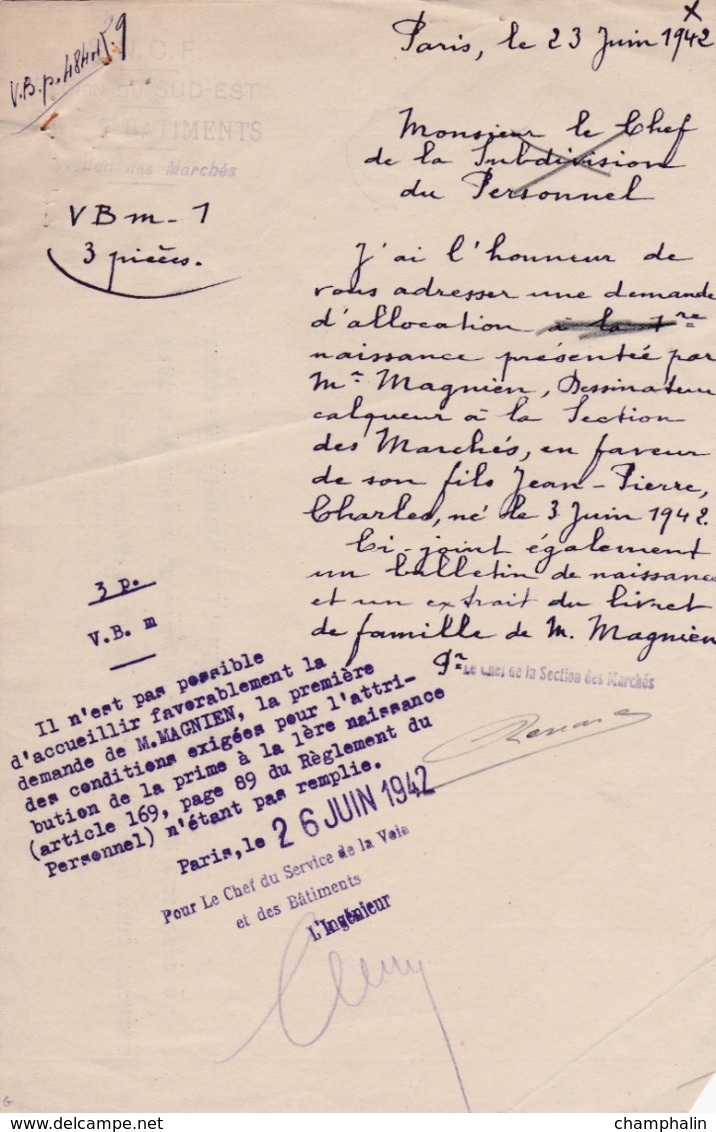 V.B.p. 484
Paris, le 23 Juin 1942
S.N.C.F.
RÉGION DU SUD-EST
BATIMENTS
Section des Marchés
Monsieur le Chef
de la Subdivision
du Personnel
VBm-1
3 pièces.
J'ai l'honneur de
vous adresser une demande
d'allocation à la 1re
naissance présentée par
Mr Magnien, Dessinateur
calqueur à la Section
des Marchés, en faveur
de son fils Jean-Pierre,
Charles, né le 3 Juin 1942.
Ci-joint également
un bulletin de naissance
et un extrait du livret
de famille de M. Magnien
Le Chef de la Section des Marchés
3 p.
V.B. m
Il n'est pas possible
d'accueillir favorablement la
demande de M.MAGNIEN, la première
des conditions exigées pour l'attri-
bution de la prime à la 1ère naissance
(article 169, page 89 du Règlement du
Personnel) n'étant pas remplie.
Paris, le 26 JUIN 1942
Pour Le Chef du Service de la Voie
et des Bâtiments
L'Ingénieur
champhalin